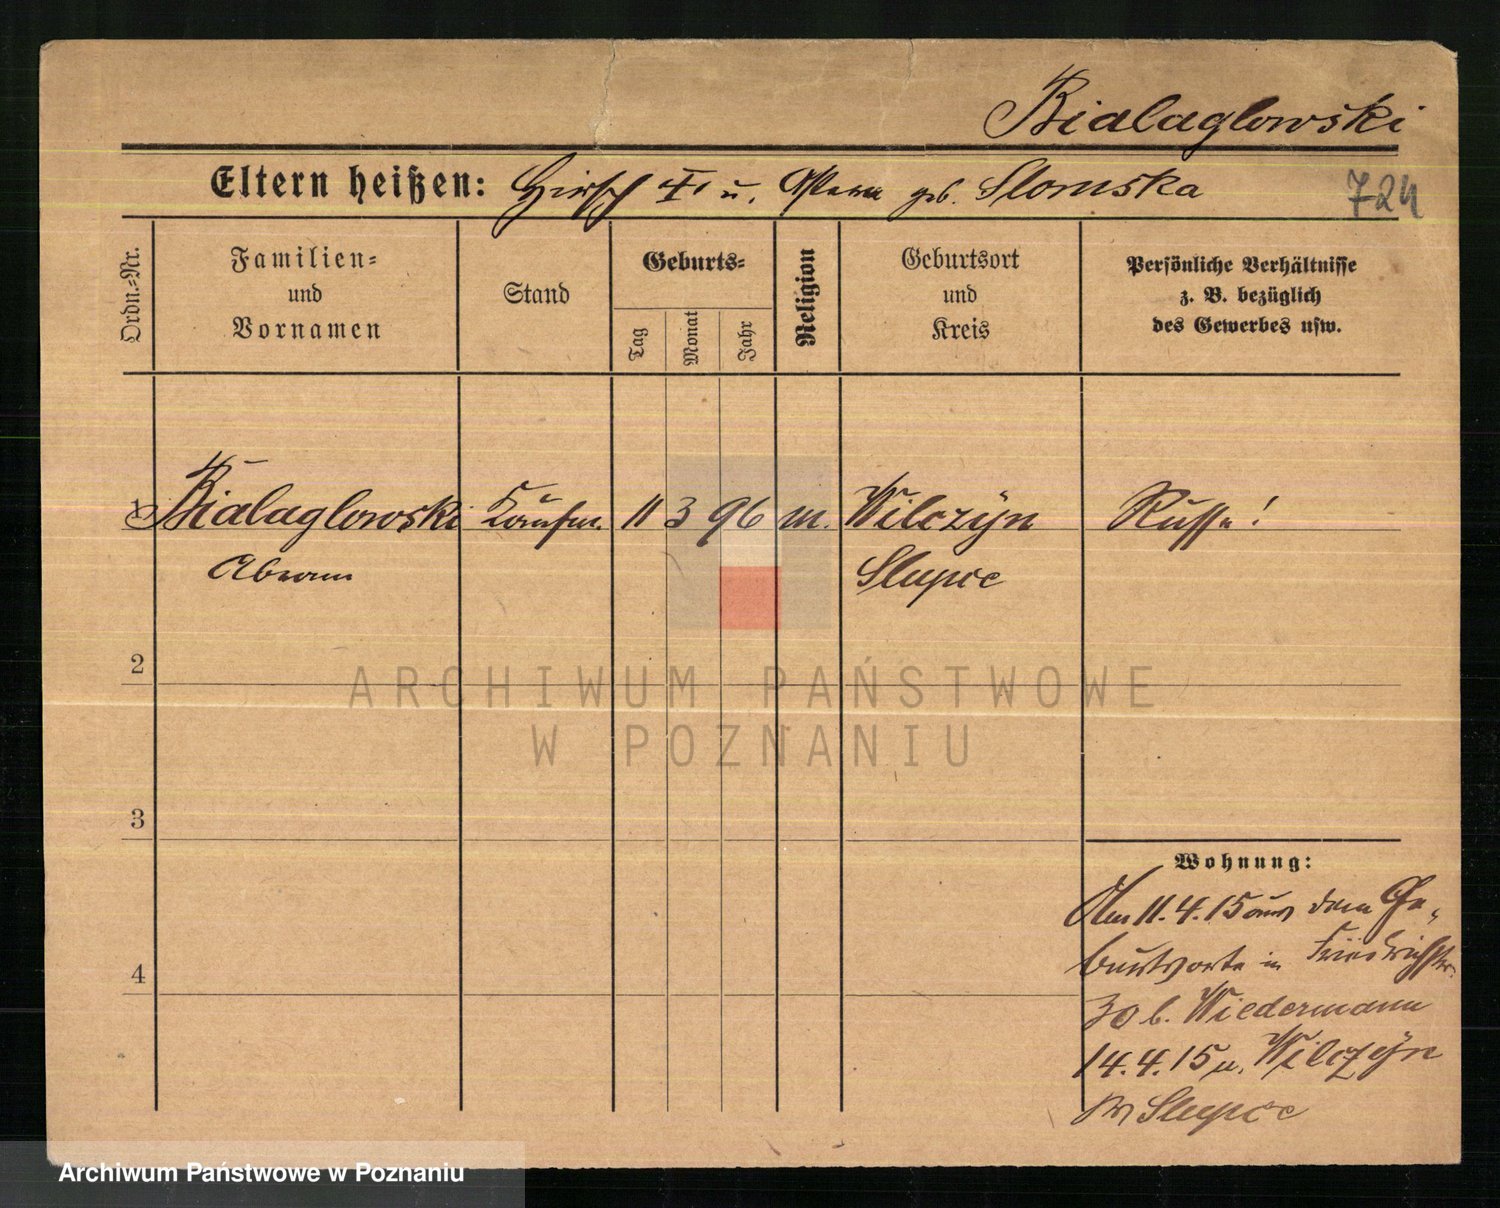 Bialaglowski
Eltern heißen: Hirsch II u. geb. Slomska
724
Ordn.-Nr.
Familien-
und
Vornamen
Stand
Geburts-
Tag
Monat
Jahr
Religion
Geburtsort
und
Kreis
Persönliche Verhältnisse
z. B. bezüglich
des Gewerbes usw.
1 Bialaglowski Kaufm. 11 3 96 m. Wilczyn Russe!
Abram Slupce
2
3
4
Wohnung:
Am 11.4.15 aus dem Ge-
burtsorte in Friedrichstr.
30 b. Wiedermann
14.4.15 n. Wilczyn
Kr Slupce
ARCHIWUM PAŃSTWOWE
W POZNANIU
Archiwum Państwowe w Poznaniu